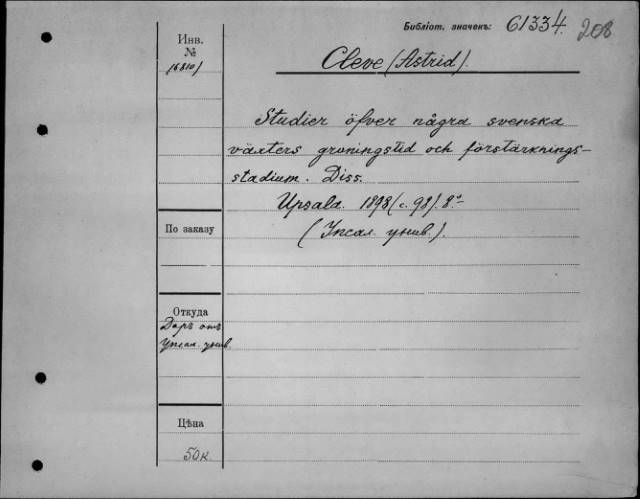 Библіот. значекъ: 61334. 208
Инв.
№
16810)
Cleve (Astrid).
Studier öfver några svenska
växters groningstid och förstärknings-
stadium. Diss.
Upsala. 1898 (c. 98). 8.º
(Упсал. унив.).
По заказу
Откуда
Даръ отъ
Упсал. унив.
Цѣна
50 к.